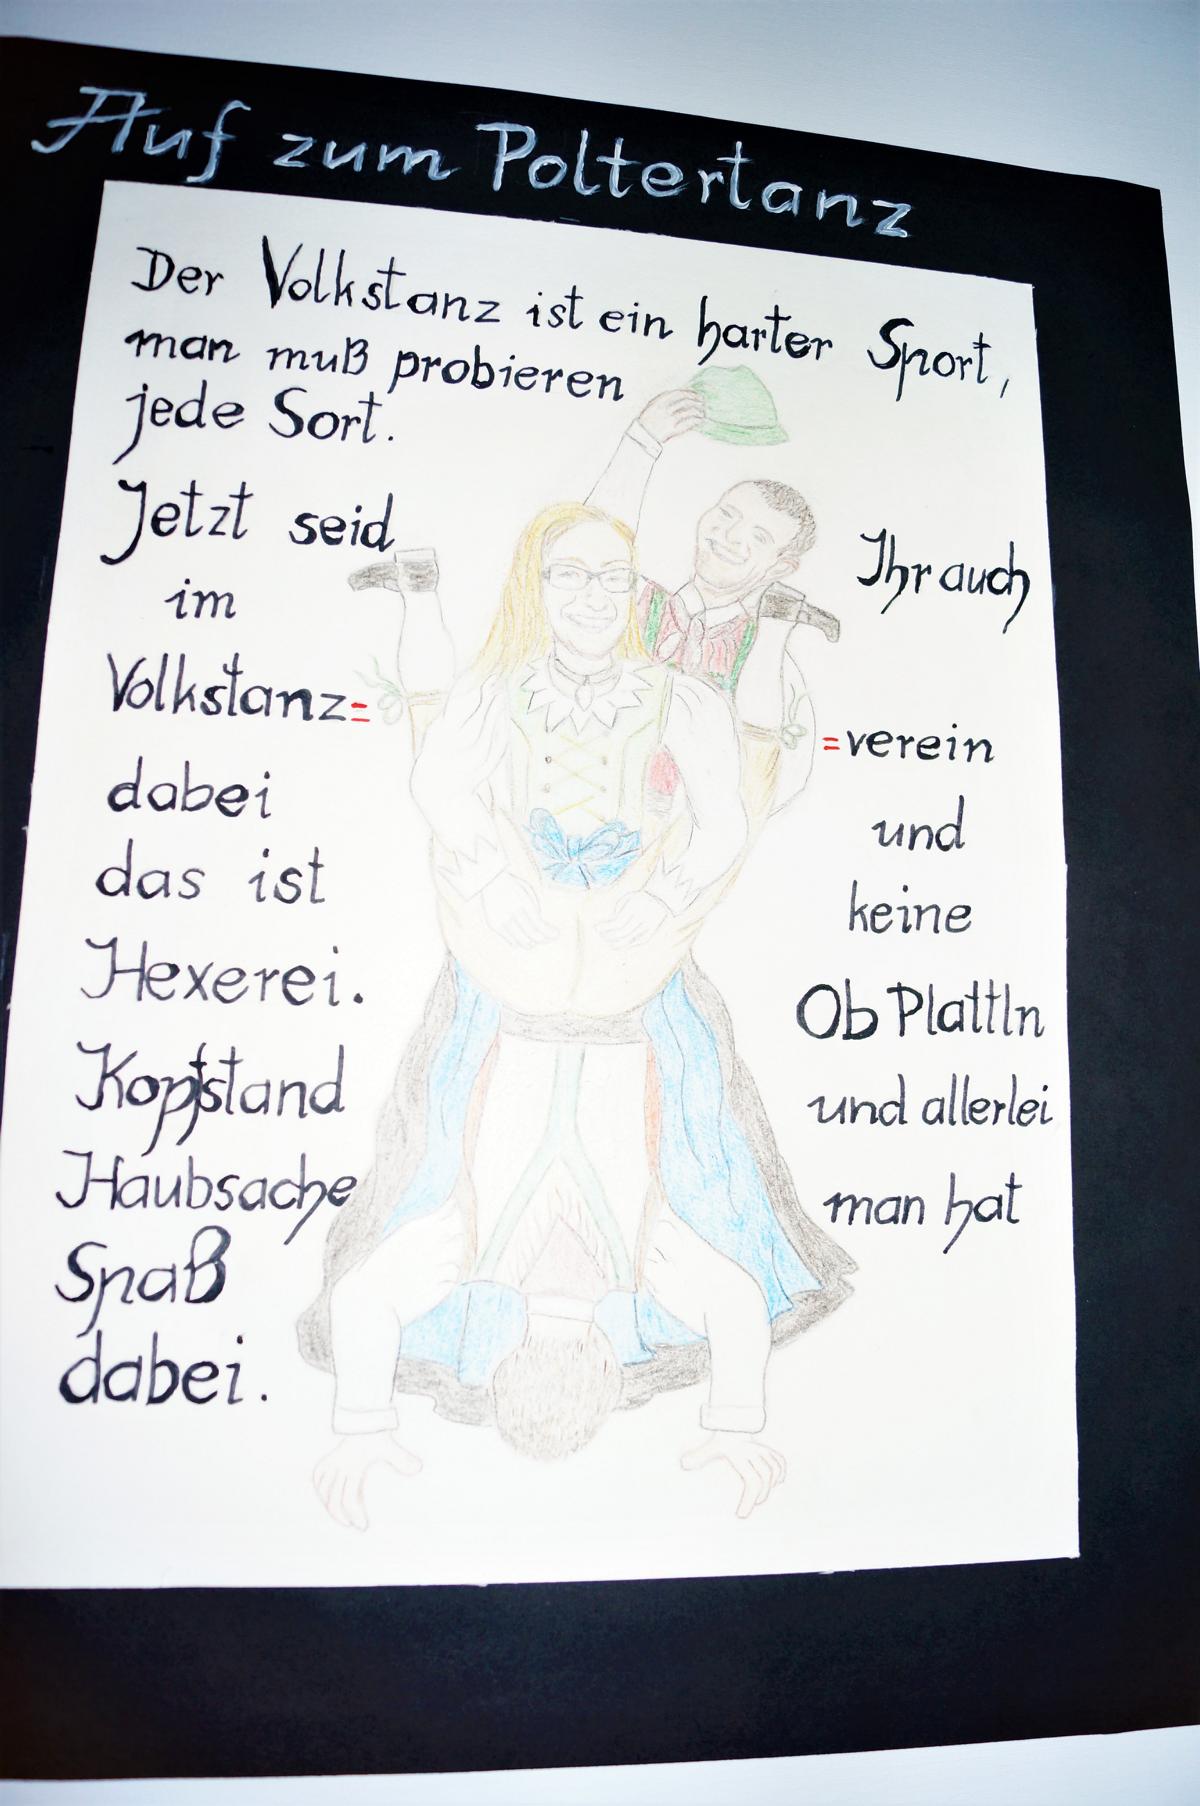 Auf zum Poltertanz
Der Volkstanz ist ein harter Sport,
man muß probieren
jede Sort.
Jetzt seid Ihr auch
im
Volkstanz= =verein
dabei und
das ist keine
Hexerei. Ob Plattln
Kopfstand und allerlei
Haubsache man hat
Spaß
dabei.